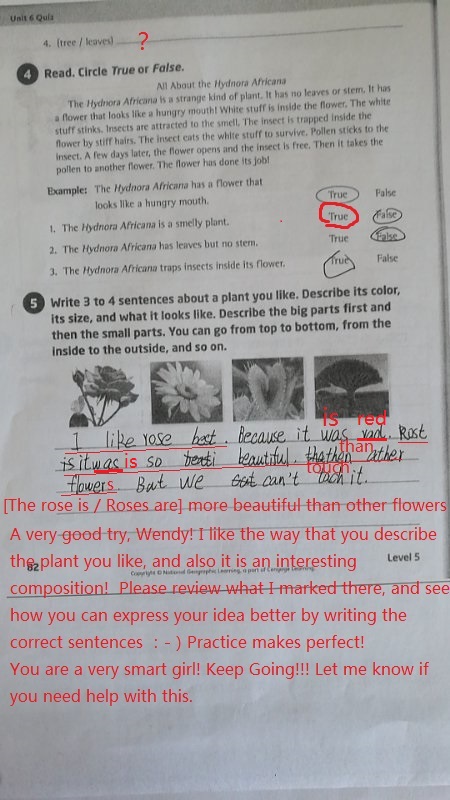 Unit 6 Quiz
4. (tree / leaves) ?
4 Read. Circle True or False.
All About the Hydnora Africana
The Hydnora Africana is a strange kind of plant. It has no leaves or stem. It has
a flower that looks like a hungry mouth! White stuff is inside the flower. The white
stuff stinks. Insects are attracted to the smell. The insect is trapped inside the
flower by stiff hairs. The insect eats the white stuff to survive. Pollen sticks to the
insect. A few days later, the flower opens and the insect is free. Then it takes the
pollen to another flower. The flower has done its job!
Example: The Hydnora Africana has a flower that
looks like a hungry mouth. True False
1. The Hydnora Africana is a smelly plant. True False
2. The Hydnora Africana has leaves but no stem. True False
3. The Hydnora Africana traps insects inside its flower. True False
5 Write 3 to 4 sentences about a plant you like. Describe its color,
its size, and what it looks like. Describe the big parts first and
then the small parts. You can go from top to bottom, from the
inside to the outside, and so on.
is red
I like rose best. Because it was rad. Rost
than
is it was is so beautiful. other
touch
flowers. But we can't toch it.
[The rose is / Roses are] more beautiful than other flowers
A very good try, Wendy! I like the way that you describe
the plant you like, and also it is an interesting
82 Copyright © National Geographic Learning, a part of Cengage Learning Level 5
composition! Please review what I marked there, and see
how you can express your idea better by writing the
correct sentences : - ) Practice makes perfect!
You are a very smart girl! Keep Going!!! Let me know if
you need help with this.